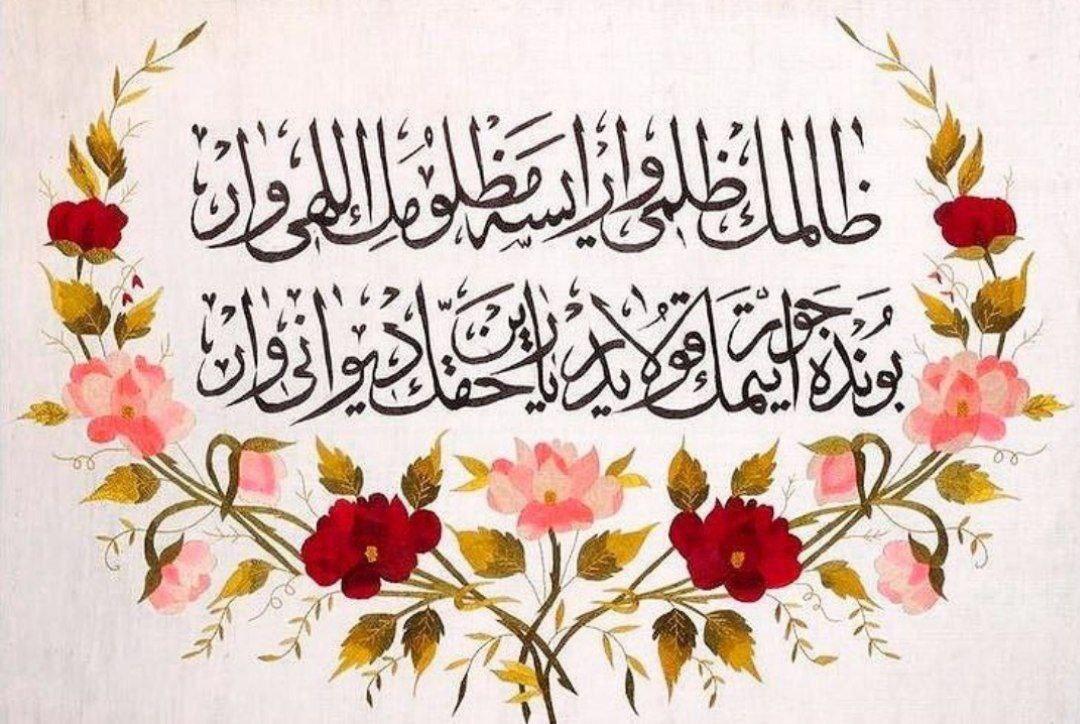 ظالمك ظلمی وار ایسه مَظلُومِك اللهی وار
بُوندَه جَورّ ایتمَك قولایدر یارین حقّك دیوانی وار